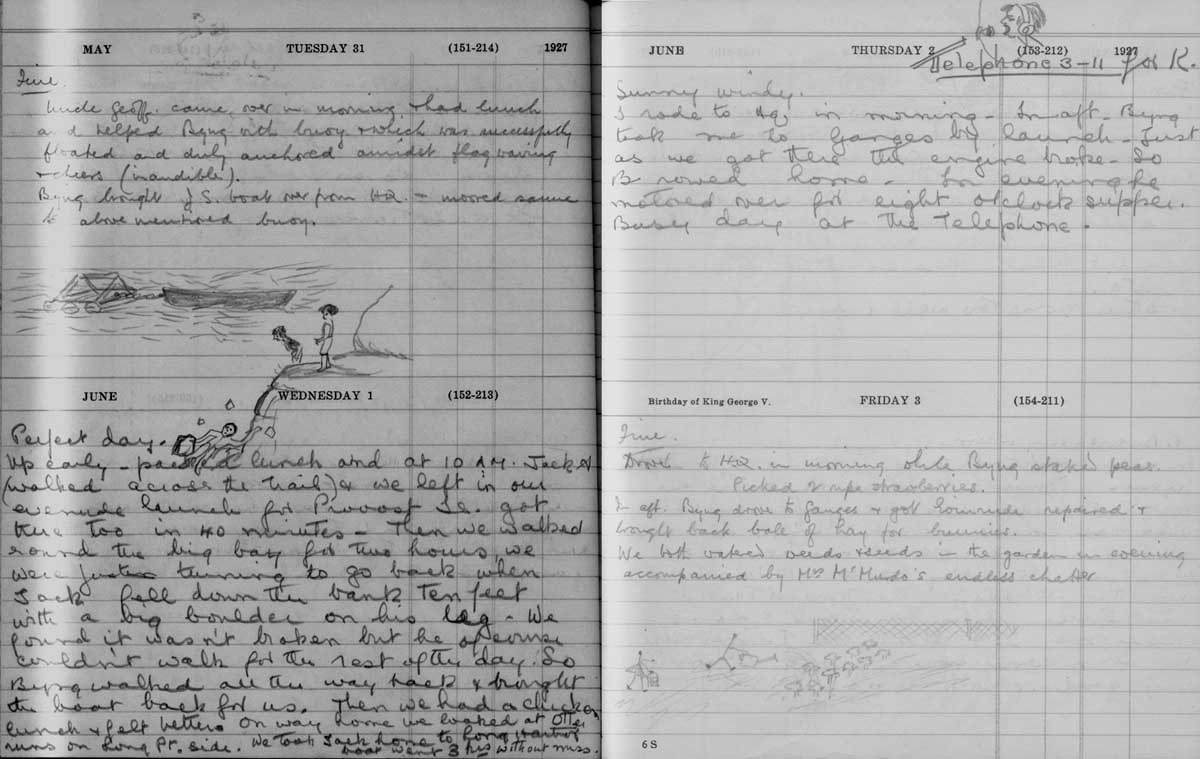 MAY TUESDAY 31 (151-214) 1927
Fine.
Uncle Geoff. came over in morning & had lunch
and helped Byng with buoy & which was successfully
floated and duly anchored amidst flag waving
& cheers (inaudible).
Byng brought J.S. boat over from H.Q. – moored same
to above mentioned buoy.
JUNE WEDNESDAY 1 (152-213)
Perfect day.
Up early – packed lunch and at 10 A.M. Jack &
(walked across the trail) & we left in our
evenrude launch for Provost Is. got
there too in 40 minutes – Then we walked
round the big bay for two hours, we
were just turning to go back when
Jack fell down the bank ten feet
with a big boulder on his leg – We
found it wasn't broken but he of course
couldn't walk for the rest of the day. So
Byng walked all the way back & brought
the boat back for us. Then we had a chicken
lunch & felt better. On way home we looked at Otter
runs on Long Pt. side. We took Jack home to Long Harbor
boat went 3 hrs without miss.
JUNE THURSDAY 2 (153-212) 1927
Telephone 3–11 for K.
Sunny windy.
I rode to Hqs in morning – In aft. Byng
took me to Ganges by launch – Just
as we got there the engine broke – So
B rowed home – In evening he
motored over for eight o'clock supper.
Busy day at the Telephone.
Birthday of King George V. FRIDAY 3 (154-211)
Fine.
Drove to H.Q. in morning while Byng staked peas.
Picked 2 ripe strawberries.
In aft. Byng drove to Ganges & got homrude repaired &
brought back bale of hay for bunnies.
We both raked weeds & seeds in the garden in evening
accompanied by Mrs McMurdo's endless chatter
6 S